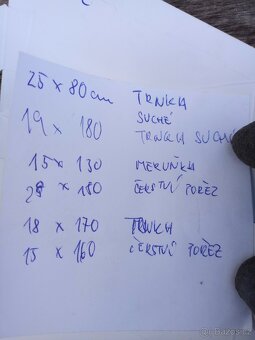 25 × 80cm TRNKA
SUCHÉ
19 × 180 TRNKA SUCHÉ
15 × 130 MERUŇKA
28 × 180 ČERSTVÍ POŘEZ
18 × 170 TRNKA
15 × 160 ČERSTVÍ POŘEZ